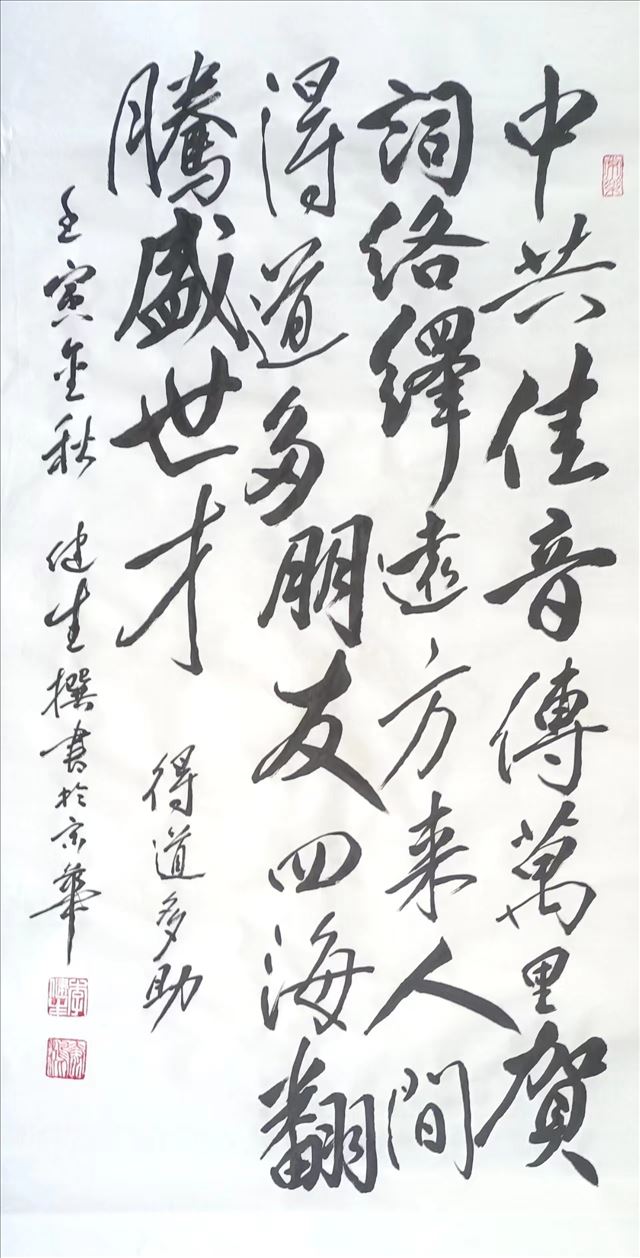 中共佳音傳萬里賀
詞絡繹遠方来人間
得道多朋友四海翻
騰盛世才
得道多助
壬寅金秋 健生撰書於京華